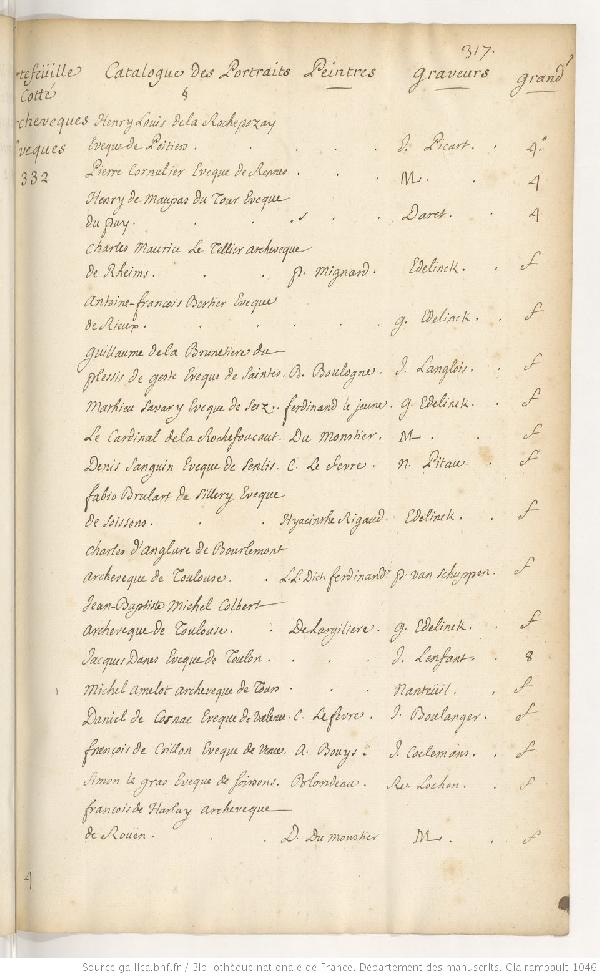 317.
rtefeüille Catalogue des Portraits Peintres graveurs grand.r
Cotté
rcheveques Henry Louis de la Rochepozay
veques Eveque de Poitiers . . . . J. Picart . . 4.o
332 Pierre Cornulier Eveque de Rennes . . . M. . . 4
Henry de Maupas du Tour Eveque
du puy. . . . Daret. . 4
Charles Maurice Le Tellier archeveque
de Rheims. . . p. Mignard. Edelinck. . f
Antoine-françois Berthier Eveque
de Rieux. . . . . . g. Edelinck. . f
guillaume de la Brunetiere du
plessis de geste Eveque de Saintes. B. Boulogne. J. Langlois. . f
Mathieu Savary Eveque de Seez. ferdinand le jeune. g. Edelinck. . f
Le Cardinal de la Rochefoucaut. Du Monstier. M. . . f
Denis Sanguin Eveque de Senlis. C. Le fevre. n. Pitau. . f
fabio Brulart de Sillery Eveque
de Soissons. . . Hyacinthe Rigaud. Edelinck. . f
Charles d'Anglure de Bourlemont
archeveque de Toulouse. . L.L. Dict. ferdinand. p. van schuppen. f
Jean-Baptiste Michel Colbert
archeveque de Toulouse. . De Largiliere. g. Edelinck. . f
Jacques Danes Eveque de Toulon. . . . J. Lenfant. . 8
Michel Amelot archeveque de Tours . . . Nanteüil. . f
Daniel de Cosnac Eveque de Valence. C. Le fevre. J. Boulanger. . f
françois de Crillon Eveque de Vence. A. Bouys. J. Coelemans. . f
Simon le gras Eveque de soissons. Blondeau. Re. Lochon. . f
françois de Harlay archeveque
de Roüen. . D. Du monstier M. . . f
4
Source gallica.bnf.fr / Bibliothèque nationale de France. Département des manuscrits. Clairambault 1046